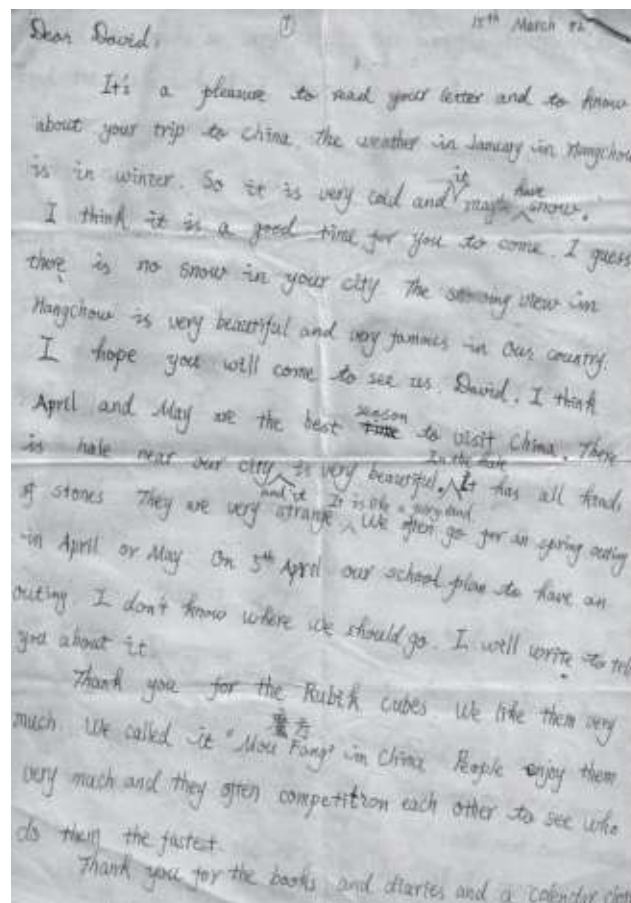 ① 15th March 82
Dear David,
It's a pleasure to read your letter and to know
about your trip to China. The weather in January in Hangchow
is in winter. So it is very cold and it maybe have snow.
I think it is a good time for you to come. I guess
there is no snow in your city. The snowing view in
Hangchow is very beautiful and very famous in our country.
I hope you will come to see us. David, I think
April and May are the best season to visit China. There
is hole near our city and it is very beautiful. In the hole It has all kinds
of stones They are very strange It is like a fairy land. We often go for an spring outing
in April or May. On 5th April our school plan to have an
outing. I don't know where we should go. I well write to tell
you about it.
Thank you for the Rubik cubes. We like them very
much. We called it "Mou Fang" in China. People enjoy them
very much and they often competition each other to see who
do them the fastest.
Thank you for the books and diaries and a calender